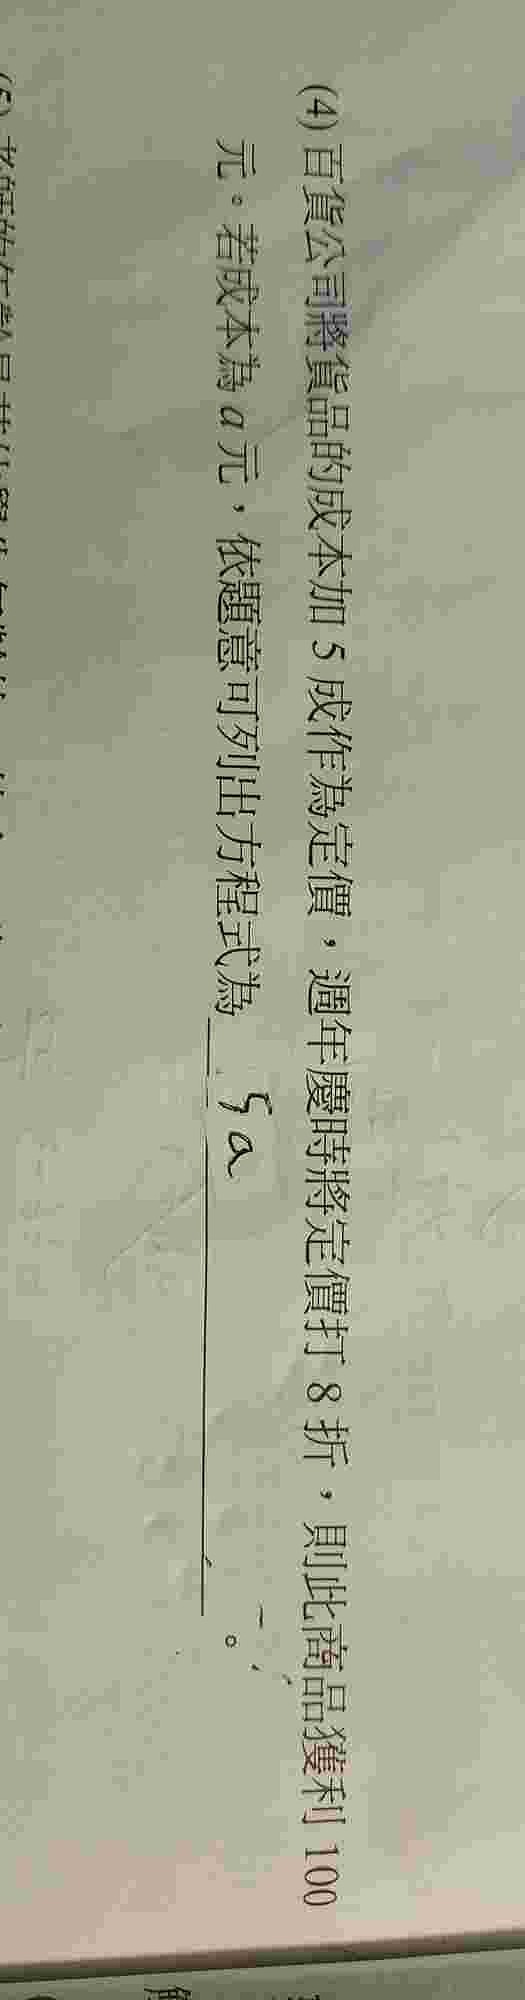 (4) 百貨公司將貨品的成本加 5 成作為定價，週年慶時將定價打 8 折，則此商品獲利 100
元。若成本為 a 元，依題意可列出方程式為 5a 。